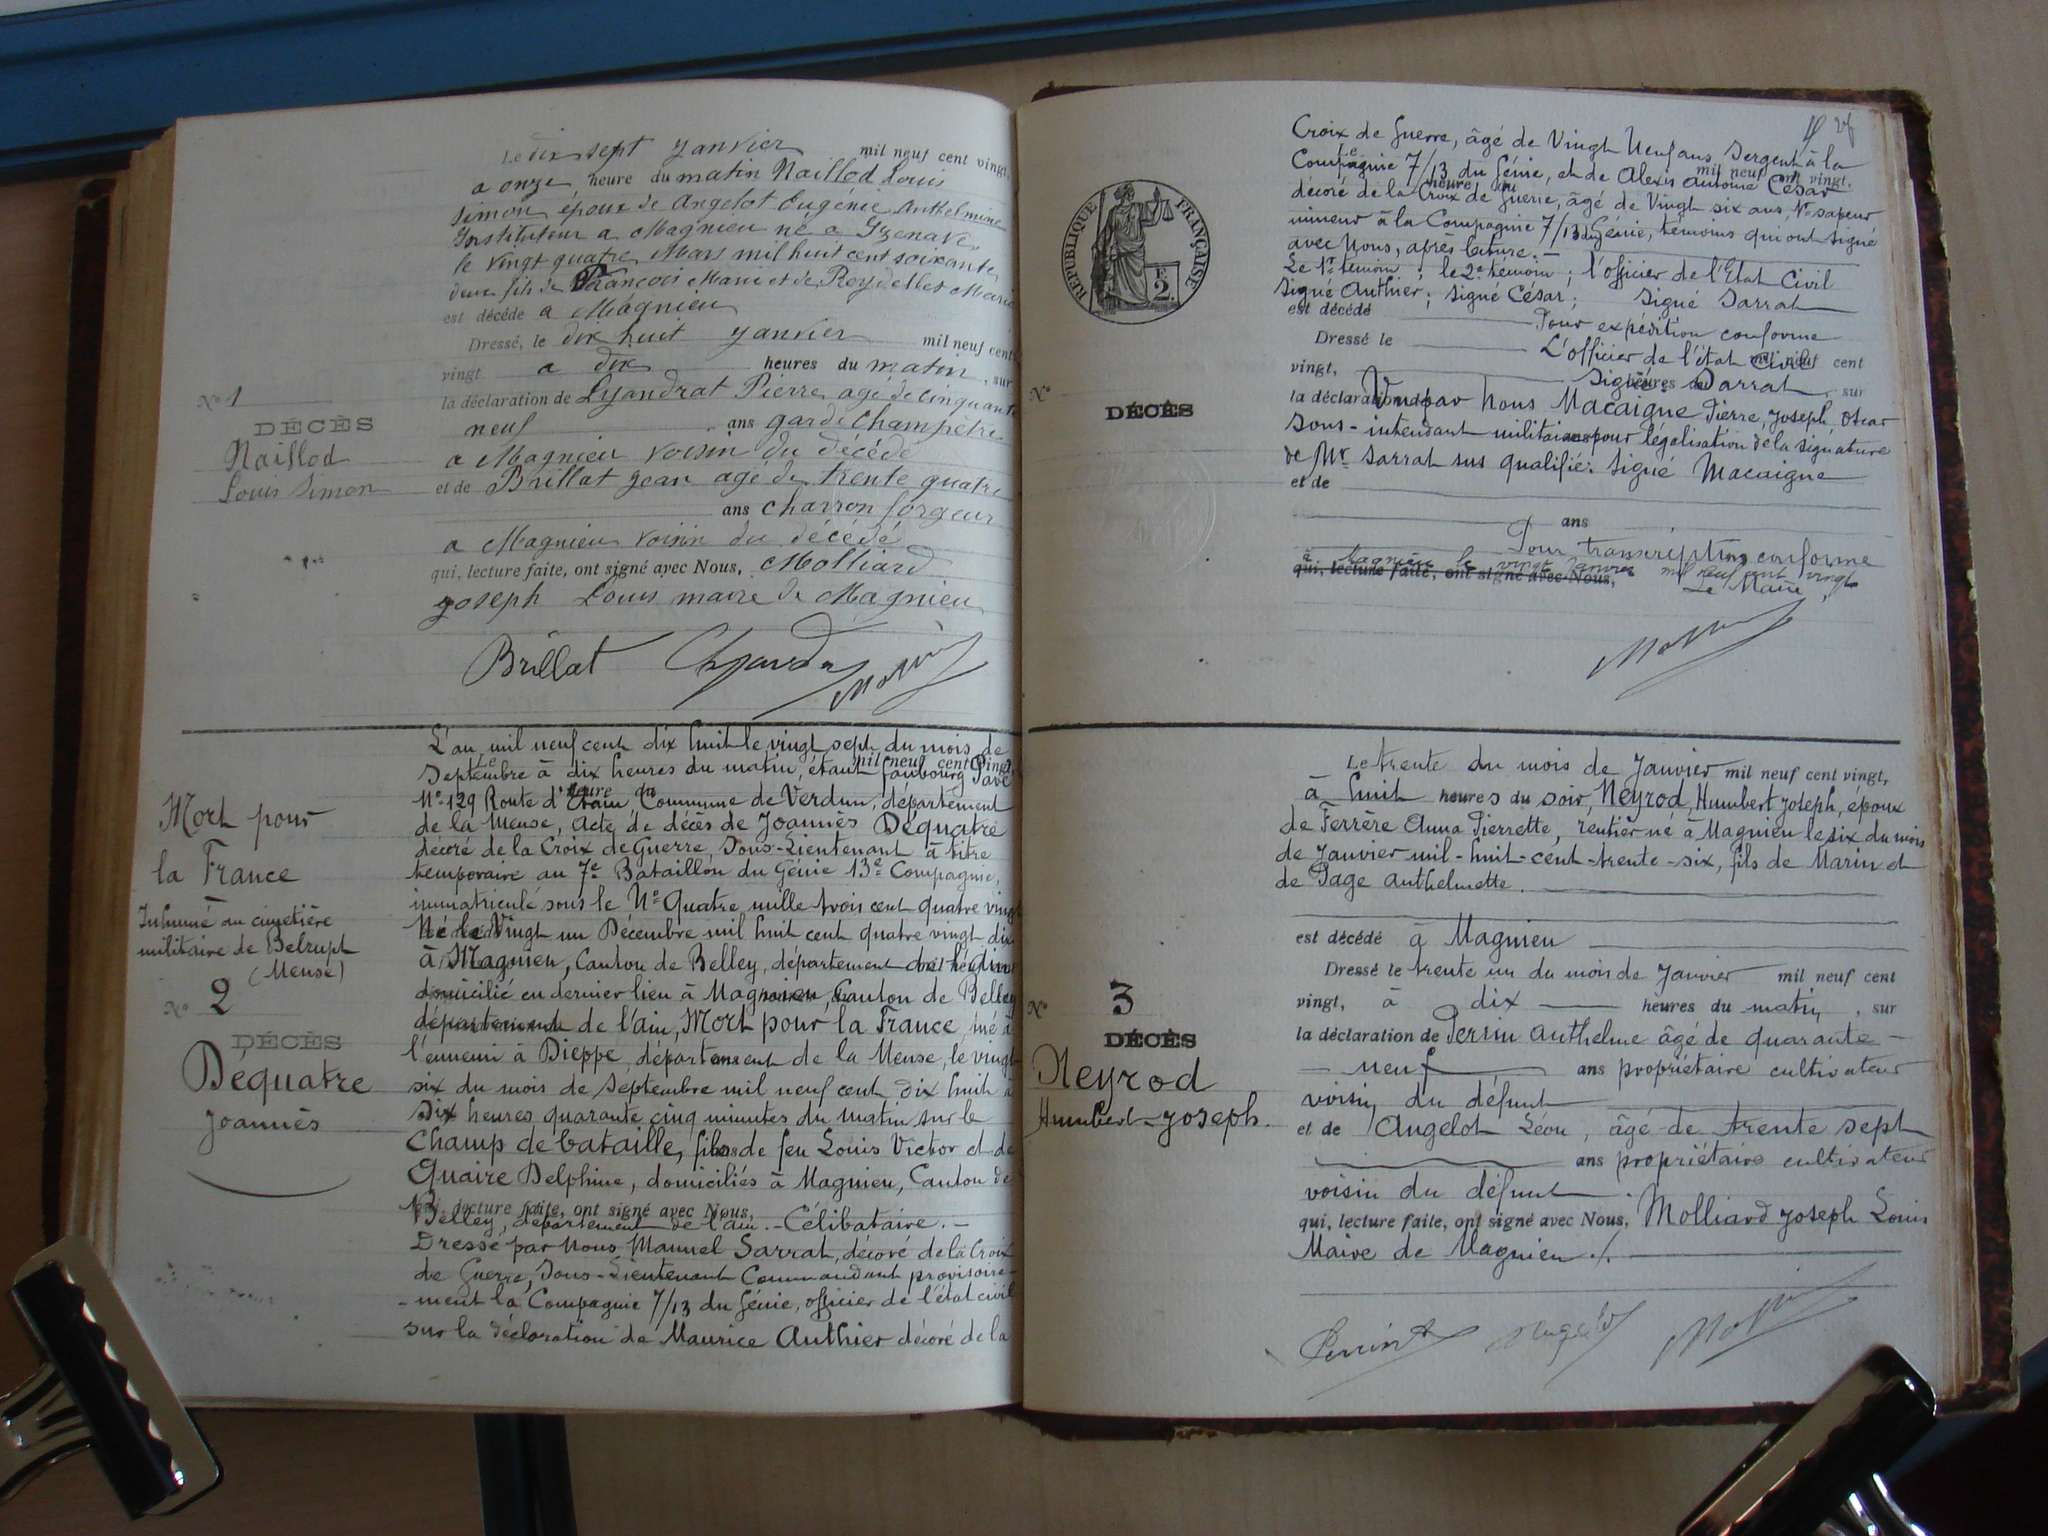 Le dix sept janvier mil neuf cent vingt,
a onze heure du matin Naillod Louis
Simon époux de Angelot Eugénie Anthelmine
Instituteur a Magnieu né a Izenave
le vingt quatre Mars mil huit cent soixante
deux fils de François Marie et de Reydellet Marie
est décédé a Magnieu
Dressé, le dix huit janvier mil neuf cent
vingt a dix heures du matin, sur
la déclaration de Lyandrat Pierre agé de cinquante
neuf ans garde champêtre
a Magnieu voisin du décédé
et de Brillat Jean agé de trente quatre
ans charron forgeur
a Magnieu voisin du décédé
qui, lecture faite, ont signé avec Nous, Molliard
Joseph Louis maire de Magnieu
Brillat
No 1
DÉCÈS
Naillod
Louis Simon
Mort pour
la France
Inhumé au cimetière
militaire de Belrupt
(Meuse)
No 2
DÉCÈS
Dequatre
Joannès
L'an mil neuf cent dix huit le vingt sept du mois de
Le mil neuf cent vingt,
Septembre à dix heures du matin, étant faubourg Pavé
heure du
No 129 Route d'Etain, Commune de Verdun, département
de la Meuse, acte de décès de Joannès Déquatre
décoré de la Croix de Guerre, Sous-Lieutenant à titre
temporaire au 7e Bataillon du Génie 13e Compagnie,
immatriculé sous le No Quatre mille trois cent quatre vingt
Né le Vingt un Décembre mil huit cent quatre vingt dix
à Magnieu, Canton de Belley, département de l'Ain
domicilié en dernier lieu à Magnieu, Canton de Belley
département de l'Ain, Mort pour la France, tué à
l'ennemi à Dieppe, département de la Meuse, le vingt
six du mois de Septembre mil neuf cent dix huit à
Dix heures quarante cinq minutes du matin sur le
Champ de bataille, fils de feu Louis Victor et de
Quaire Delphine, domiciliés à Magnieu, Canton de
qui, lecture faite, ont signé avec Nous,
Belley, département de l'Ain. - Célibataire. -
Dressé par Nous Manuel Sarrat, décoré de la Croix
de Guerre, Sous-Lieutenant Commandant provisoire-
-ment la Compagnie 7/13 du Génie, officier de l'état civil
sur la déclaration de Maurice Authier décoré de la
Croix de Guerre, âgé de Vingt Neuf ans, Sergent à la
Le mil neuf cent vingt,
Compagnie 7/13 du Génie, et de Alexis Antoine César
heure du
décoré de la Croix de Guerre, âgé de Vingt six ans, Me sapeur
mineur à la Compagnie 7/13 du Génie, témoins qui ont signé
avec Nous, après lecture. -
Le 1er témoin ; le 2e témoin ; l'officier de l'Etat Civil
Signé Authier ; Signé César ; Signé Sarrat
est décédé Pour expédition conforme
Dressé le L'officier de l'état Civil mil neuf cent
vingt, Signé: Sarrat heures du, sur
la déclaration de Vu par Nous Macaigne Pierre, Joseph Oscar
Sous-intendant militaire pour légalisation de la signature
de Mr Sarrat sus qualifié. Signé Macaigne
et de
ans
Pour transcription conforme
à Magnieu le vingt Janvier mil neuf cent vingt
qui, lecture faite, ont signé avec Nous,
Le Maire,
RÉPUBLIQUE FRANÇAISE
No
DÉCÈS
Le trente du mois de Janvier mil neuf cent vingt,
à huit heures du soir, Neyrod, Humbert Joseph, époux
de Ferrère Anna Pierrette, rentier né à Magnieu le six du mois
de Janvier mil-huit-cent-trente-six, fils de Marin et
de Page Anthelmette.
est décédé à Magnieu
Dressé le trente un du mois de Janvier mil neuf cent
vingt, à dix heures du matin, sur
la déclaration de Perrin Anthelme âgé de quarante-
-neuf ans propriétaire cultivateur
voisin du défunt
et de Angelot Léon, âgé de trente sept
ans propriétaire cultivateur
voisin du défunt.
qui, lecture faite, ont signé avec Nous, Molliard Joseph Louis
Maire de Magnieu ./.
Perrin A Angelot
No 3
DÉCÈS
Neyrod
Humbert-Joseph.